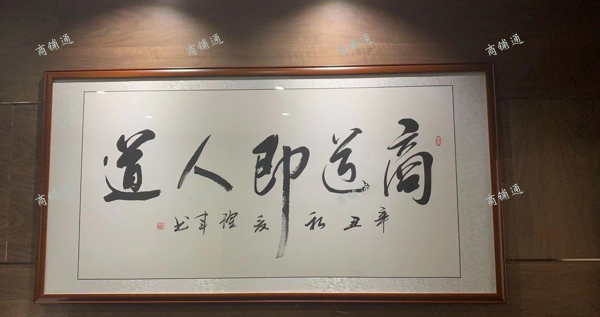 商道即人道
辛丑秋
商铺通
商铺通
商铺通
商铺通
商铺通
商铺通